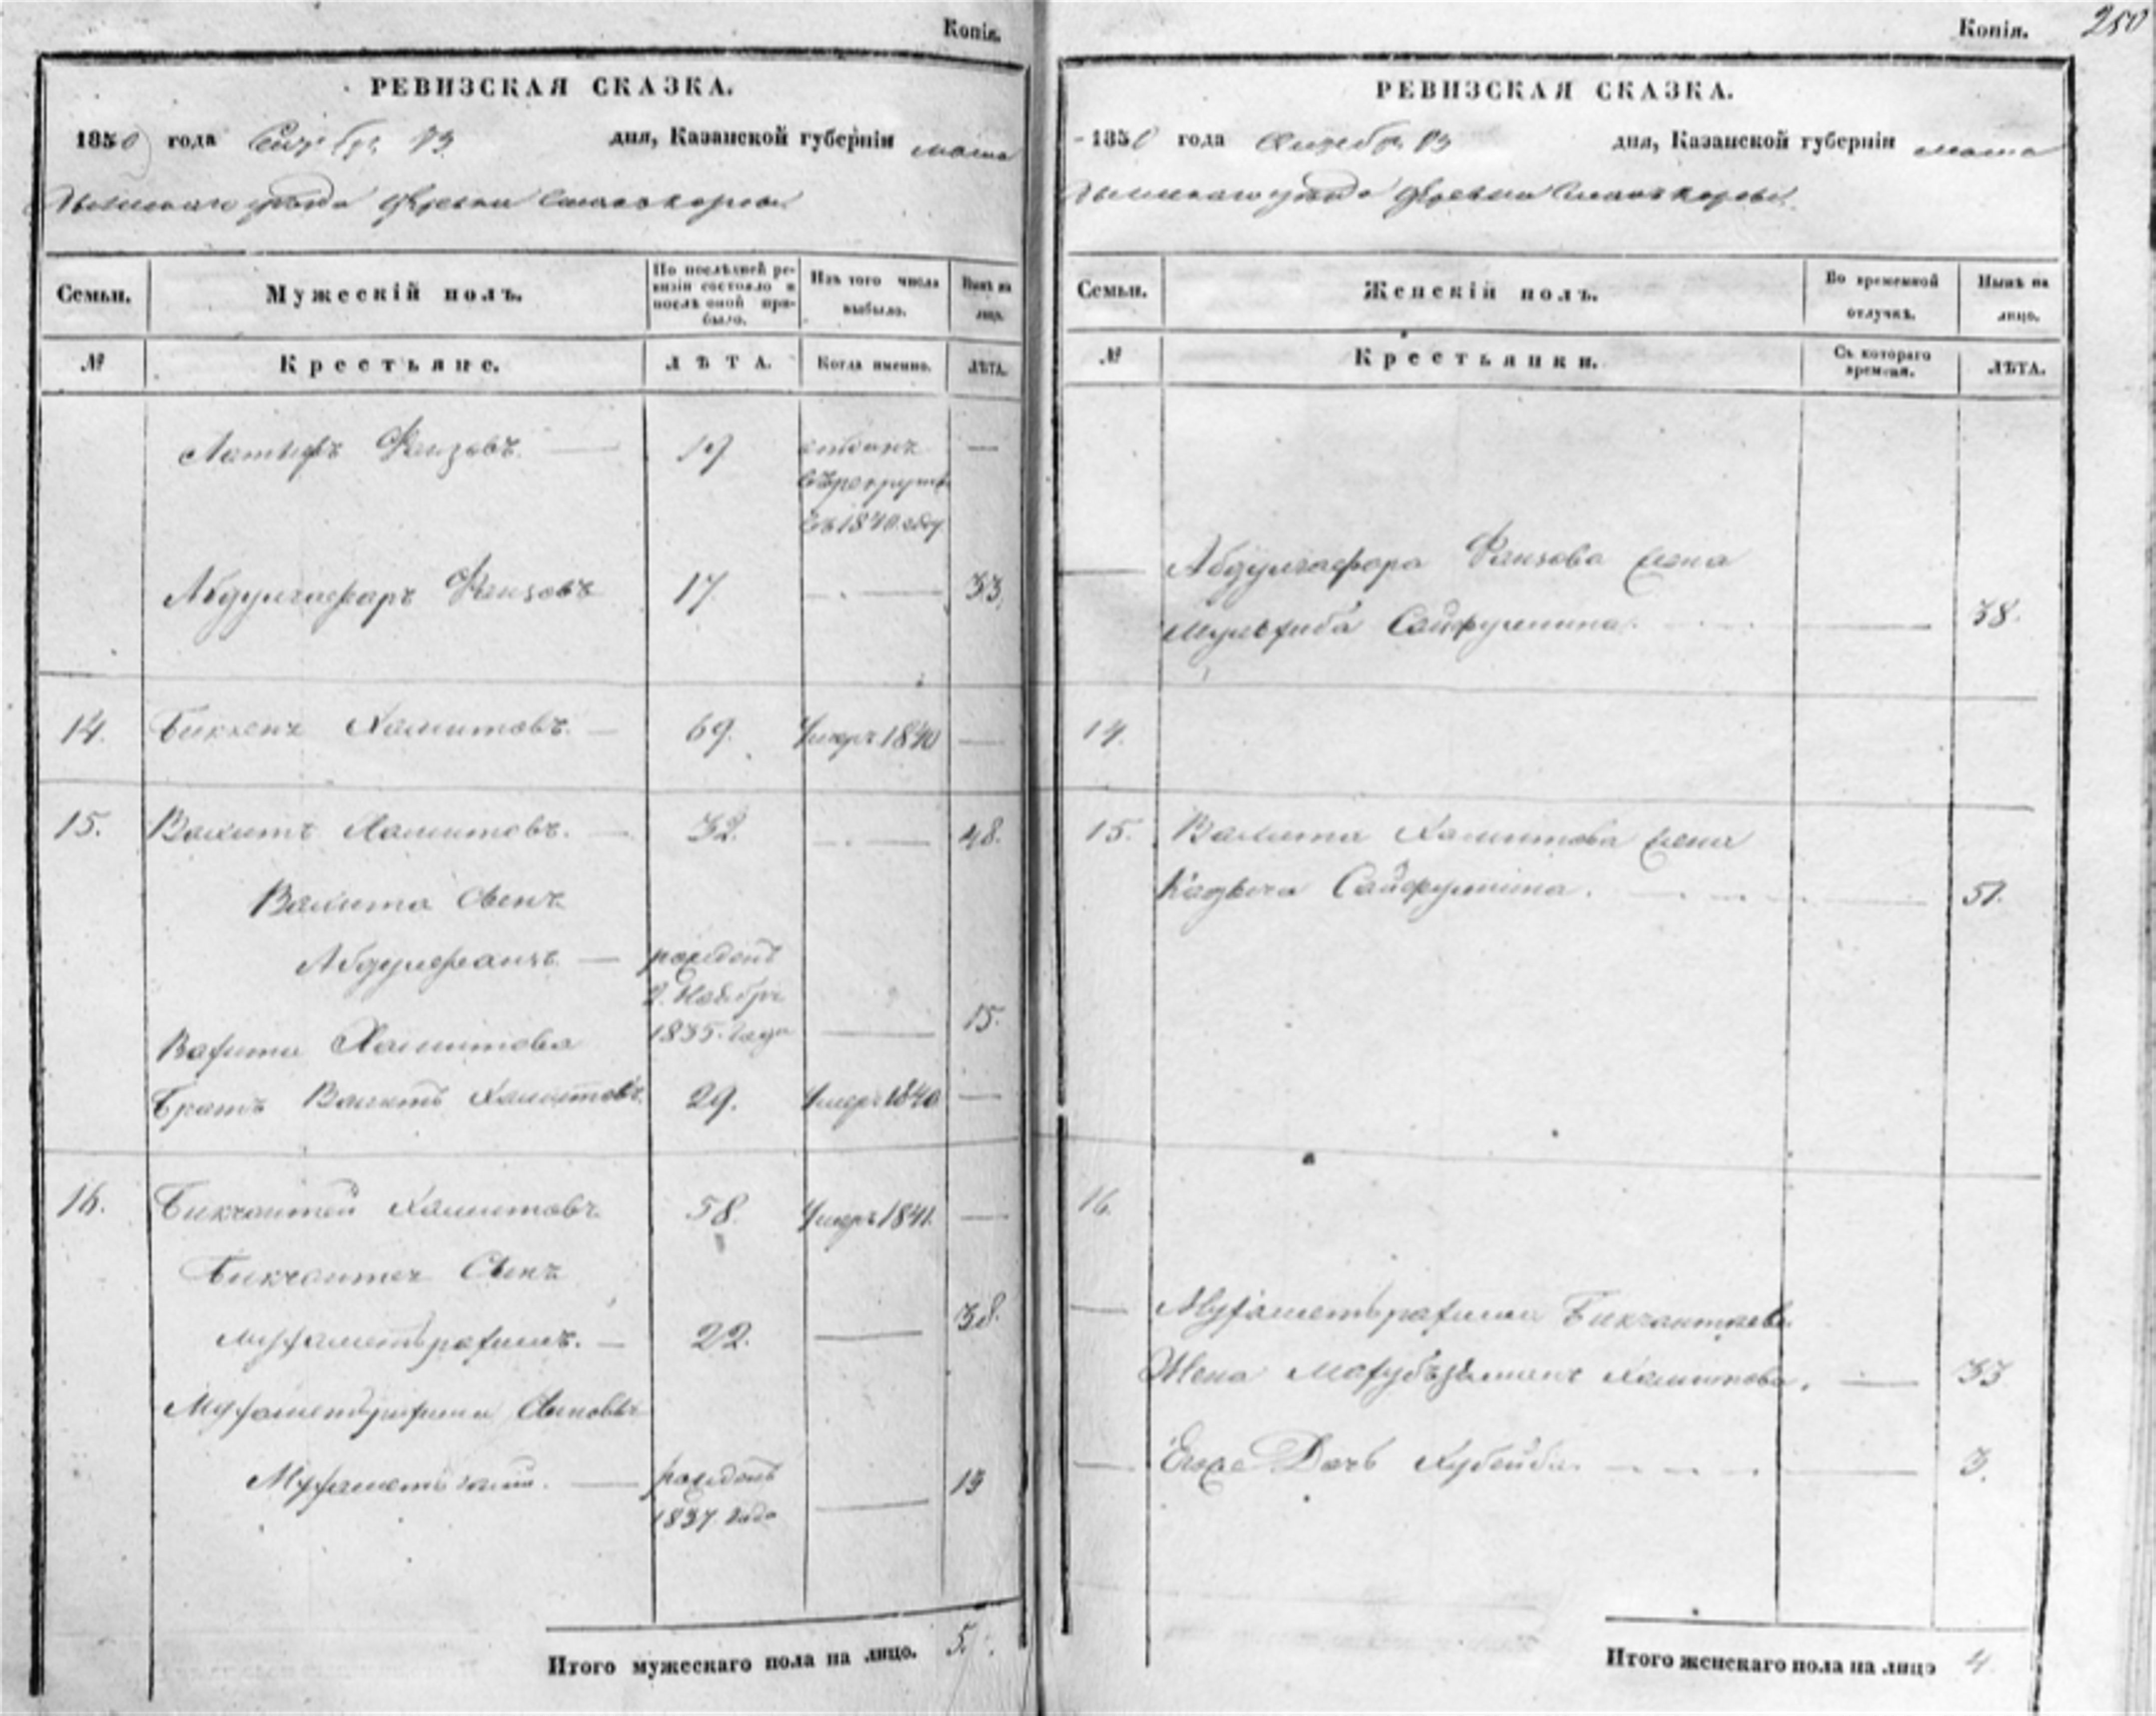 Копія.
РЕВИЗСКАЯ СКАЗКА.
1850 года Октября 13 дня, Казанской губерніи мама
дышскаго уѣзда деревни
Семьи.
Мужескій полъ.
По послѣдней ре-
визіи состояло и
послѣ оной при-
было.
Изъ того числа
выбыло.
Нынѣ на
лицо.
№
Крестьяне.
ЛѢТА.
Когда именно.
ЛѢТА.
Латыфъ Фаизовъ. 19 отданъ
въ рекруты
въ 1840 году
Абдулгафаръ Фаизовъ 17. 33.
14. Хамитовъ. 69. Умеръ 1840
15. Вахитъ Хамитовъ. 32. 48.
Вахита Сынъ
рожденъ
2. Ноября
1835. Года 15.
Хамитова
Братъ Хамитовъ. 29. Умеръ 1840
16. Бикчантей Хамитовъ 58. Умеръ 1841.
Бикчантея Сынъ
Мухаметьрахимъ. 22. 38.
Мухаметьрахима Сыновья
рожденъ
1837. Года 13
Итого мужескаго пола на лицо. 5.
Копія. 250
РЕВИЗСКАЯ СКАЗКА.
1850 года Октября 13 дня, Казанской губерніи мама
дышскаго уѣзда деревни
Семьи.
Женскій полъ.
Во временной
отлучкѣ.
Нынѣ на
лицо.
№
Крестьянки.
Съ котораго
времени.
ЛѢТА.
Абдулгафара Фаизова жена
Сайфулина. 38.
14.
15. Вахита Хамитова жена
Сайфулина. 51.
16.
Мухаметьрахима Бикчантаева
Жена Хамитова. 33
Его Дочь Хубейба. 3.
Итого женскаго пола на лицо 4.